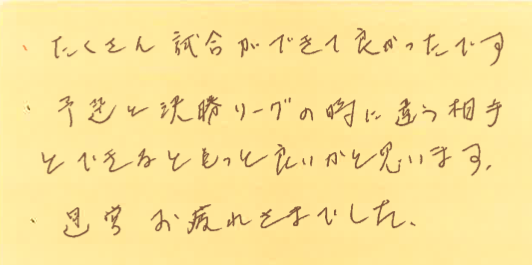 ・たくさん試合ができて良かったです
・予選と決勝リーグの時に違う相手
とできるともっと良いかと思います。
・運営お疲れさまでした。